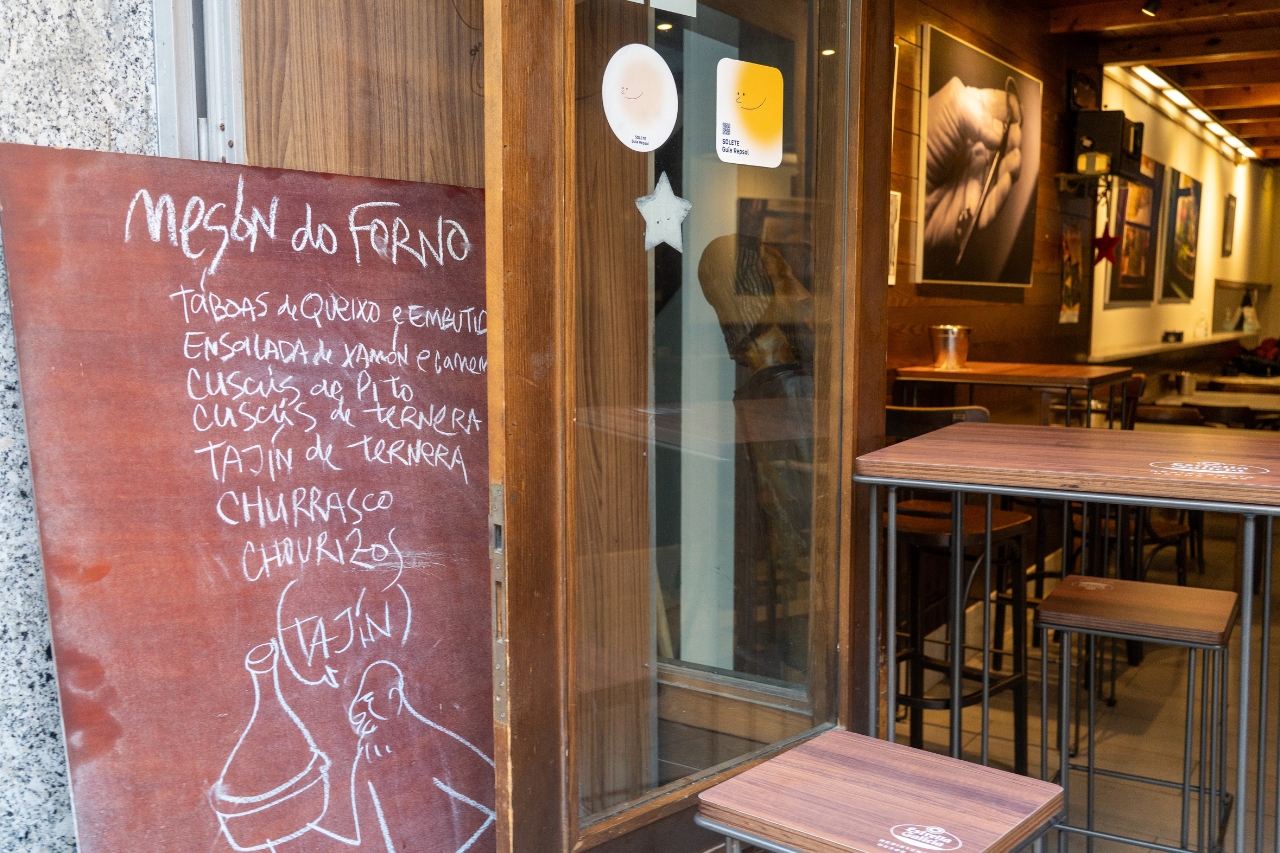 Mesón do FORNO
TáBOAS de QUEIXO e EMBUTID
ENSALADA de XAMÓN e
CUSCÚS de PITO
CUSCÚS de TERNERA
TAJÍN de TERNERA
CHURRASCO
CHOURIZOS
TAJÍN
SOLETE
Guía Repsol
SOLETE
Guía Repsol
Estrella
Galicia